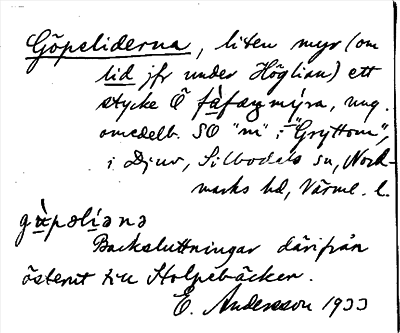 Göpeliderna, liten myr (om
lid jfr under Höglian) ett
stycke Ö fäfæmýra, ung.
omedelb. SO "m" i "Gryttom",
i Djur, Silbodals sn, Nord-
marks hd, Värml. l.
Backsluttningar därifrån
österut till Stolpebäcken.
E. Andersson 1933